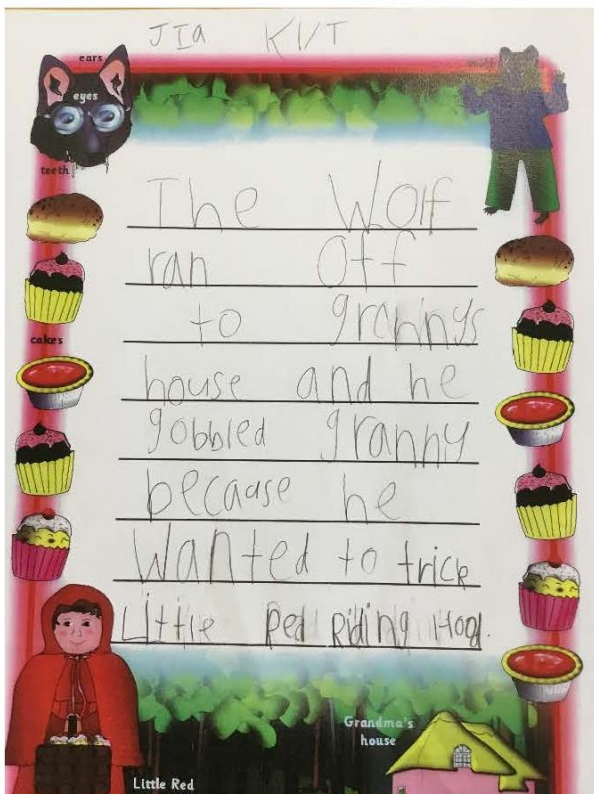 JIa KI/T
ears
eyes
teeth
The Wolf
ran off
to grannys
house and he
cakes
gobbled granny
becaase he
Wanted to trick
Little Red Riding Hood.
Grandma's
house
Little Red